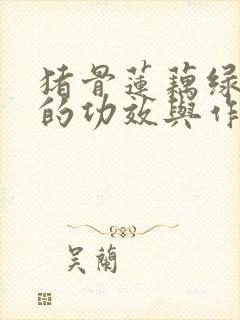 猪骨蓮藕绿
的功效與作
吴蘭